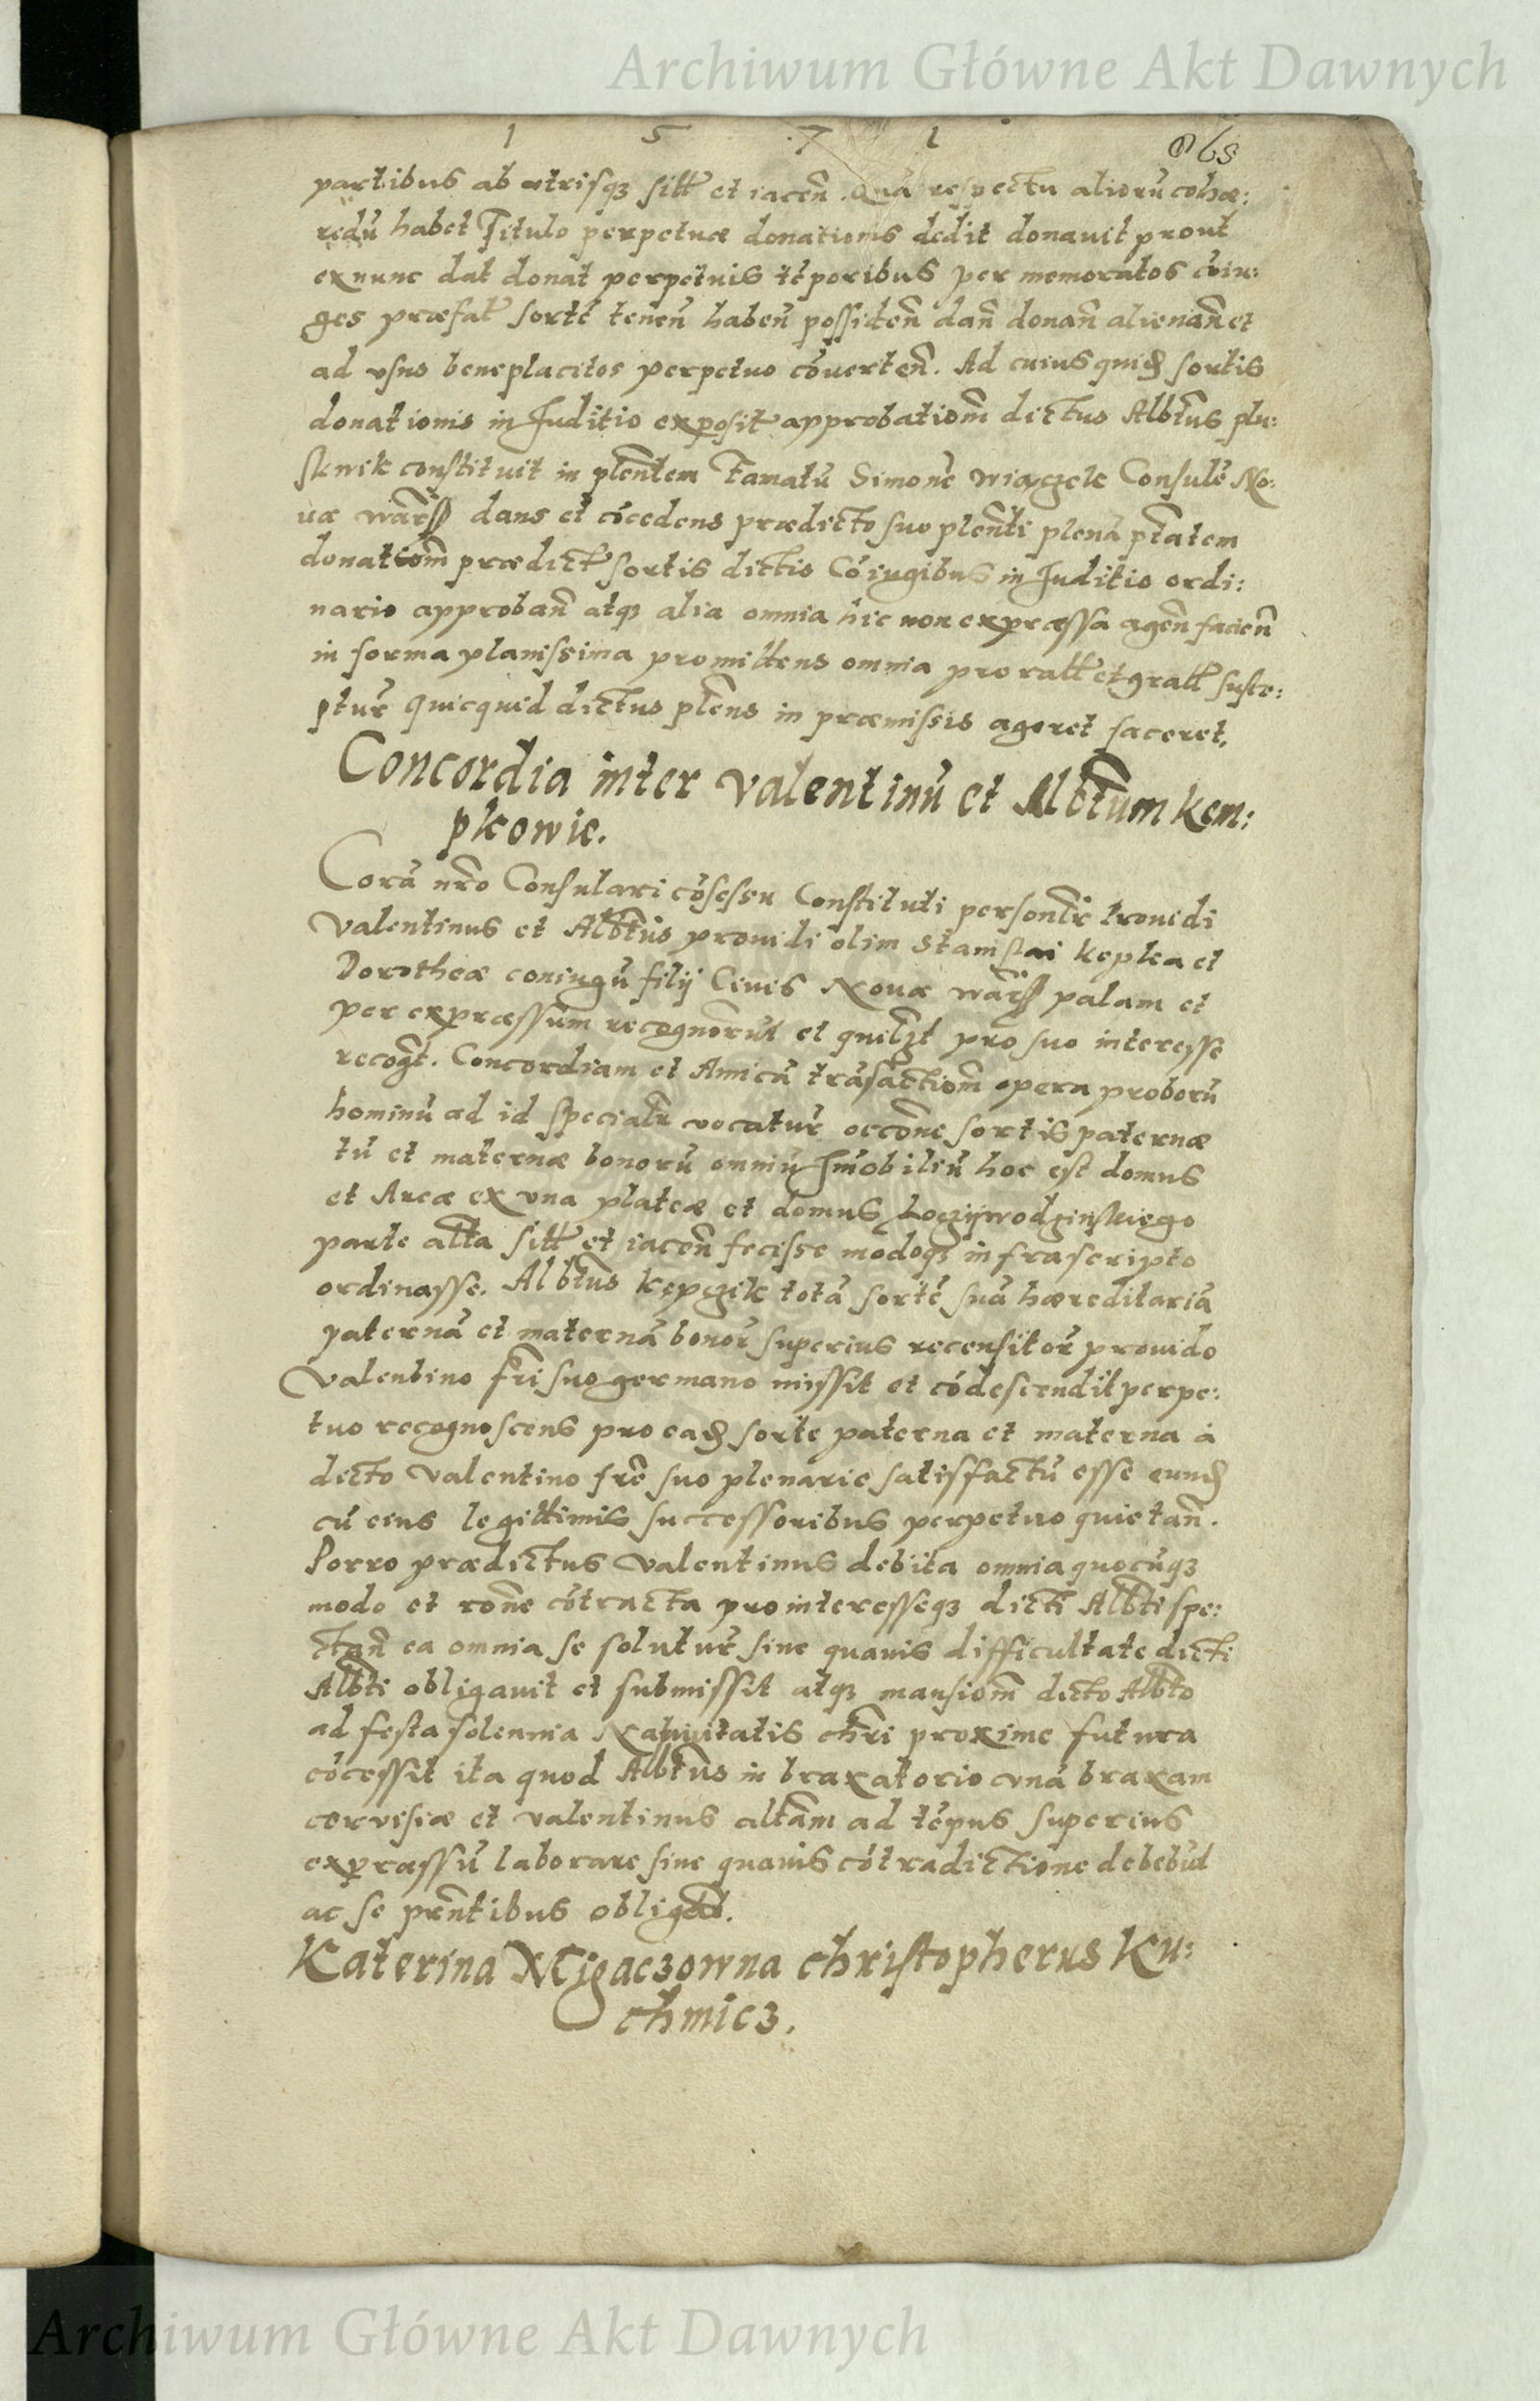 Archiwum Główne Akt Dawnych
1 5 7 1
partibus ab utrisq3 sitt et iacen̄. Quā respectu aliorū cohæ:
redū habet Titulo perpetuæ donationis dedit donauit prout
exnunc dat donat perpetuis tēporibus per memoratos cōiu:
ges præfat sortē tenen̄ haben̄ possiden̄ dan̄ donan̄ alienan̄ et
ad usus beneplacitos perpetuo cōuerten̄. Ad cuius quid sortis
donationis in Juditio exposit approbatiom̄ dictus Albt̄us plu:
skwik constituit in plen̄tem Famatū Simonē Consulē No:
uæ War̄ss dans et cōcedens prædicto suo plen̄ti plenā ptātem
donatiom̄ prædict sortis dictis Cōiugibus in Juditio ordi:
nario approban̄ atq3 alia omnia hic non expræssa agen̄ facien̄
in forma planissima promittens omnia pro ratt et gratt susce:
ptur̄ quicquid dictus plen̄s in præmissis ageret faceret.
Concordia inter Valentinū et Albt̄um Kem:
pkowie.
Corā nr̄o Consulari cōsessu Constituti person̄lr Prouidi
Valentinus et Albt̄us prouidi olim Stanislai Kepka et
Dorotheæ coniugū filij Ciues Nouæ War̄ss palam et
per expræssum recognōrūt et quilȝt pro suo interesse
recog̃t. Concordiam et Amicā trāsactiom̄ opera proborū
hominū ad id specialr̄ uocatur̄ occōne sortis paternæ
tū et maternæ bonorū omniū Jmobiliū hoc est domus
et Areæ ex una plateæ et domus
parte alt̄a sitt et iacen̄ fecisse modoq3 infrascripto
ordinasse. Albt̄us Kepczik totā sortē suā hæreditariā
paternā et maternā bonor̄ superius recensitor̄ prouido
Valentino fr̄i suo germano missit et cōdescendit perpe:
tuo recognoscens pro ead sorte paterna et materna à
dicto Valentino fr̄e suo plenarie satisfactū esse eund
cū eius legittimis successoribus perpetuo quietan̄.
Porro prædictus Valentinus debita omnia quocūq3
modo et rōne cōtracta pro interesseq3 dicti Albt̄i spe:
ctan̄ ea omnia se solutur̄ sine quauis difficultate dicti
Albt̄i obligauit et submissit atq3 mansiom̄ dicto Albt̄o
ad festa solennia Natiuitatis chr̄i proxime futura
cōcessit ita quod Albt̄us in braxatorio unā braxam
ceruisiæ et Valentinus alt̄am ad tēpus superius
expræssū laborare sine quauis cōtradictione debebūt
ac se pn̄tibus obligāt.
Katerina Migaczowna christopherus Ku:
chmicz.
Archiwum Główne Akt Dawnych